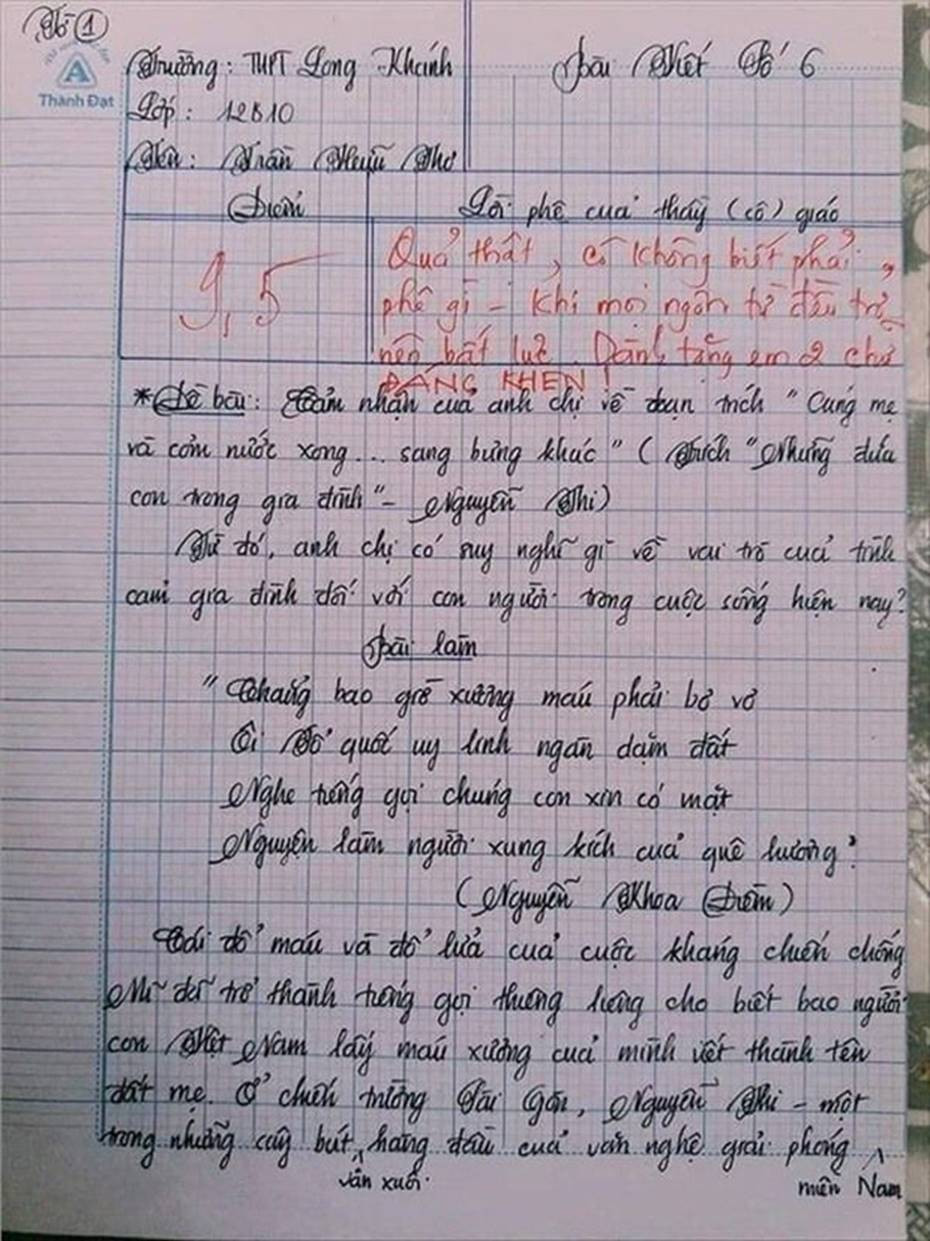 Tờ 1
Thành Đạt
Trường: THPT Long Khánh
Bài Viết Số 6
Lớp: 12B10
Tên: Trần Hữu Thơ
Điểm
Lời phê của thầy (cô) giáo
9,5
Quả thật, cô không biết phải
phê gì - Khi mọi ngôn từ đều trở
nên bất lực. Dành tặng em 2 chữ
ĐÁNG KHEN!
*Đề bài: Cảm nhận của anh chị về đoạn trích "Cúng mẹ
và cơm nước xong... sang bưng khác" (Trích "Những đứa
con trong gia đình" - Nguyễn Thi)
Từ đó, anh chị có suy nghĩ gì về vai trò của tình
cảm gia đình đối với con người trong cuộc sống hiện nay?
Bài làm
"Chẳng bao giờ xương máu phải bơ vơ
Ôi Tổ quốc uy linh ngàn dặm đất
Nghe tiếng gọi chúng con xin có mặt
Nguyện làm người xung kích của quê hương"
(Nguyễn Khoa Điềm)
Cái đổ máu và đổ lửa của cuộc kháng chiến chống
Mĩ đã trở thành tiếng gọi thiêng liêng cho biết bao người
con Việt Nam lấy máu xương của mình viết thành tên
đất mẹ. Ở chiến trường Sài Gòn, Nguyễn Thi - một
trong những cây bút ^ hàng đầu của văn nghệ giải phóng ^
văn xuôi
miền Nam